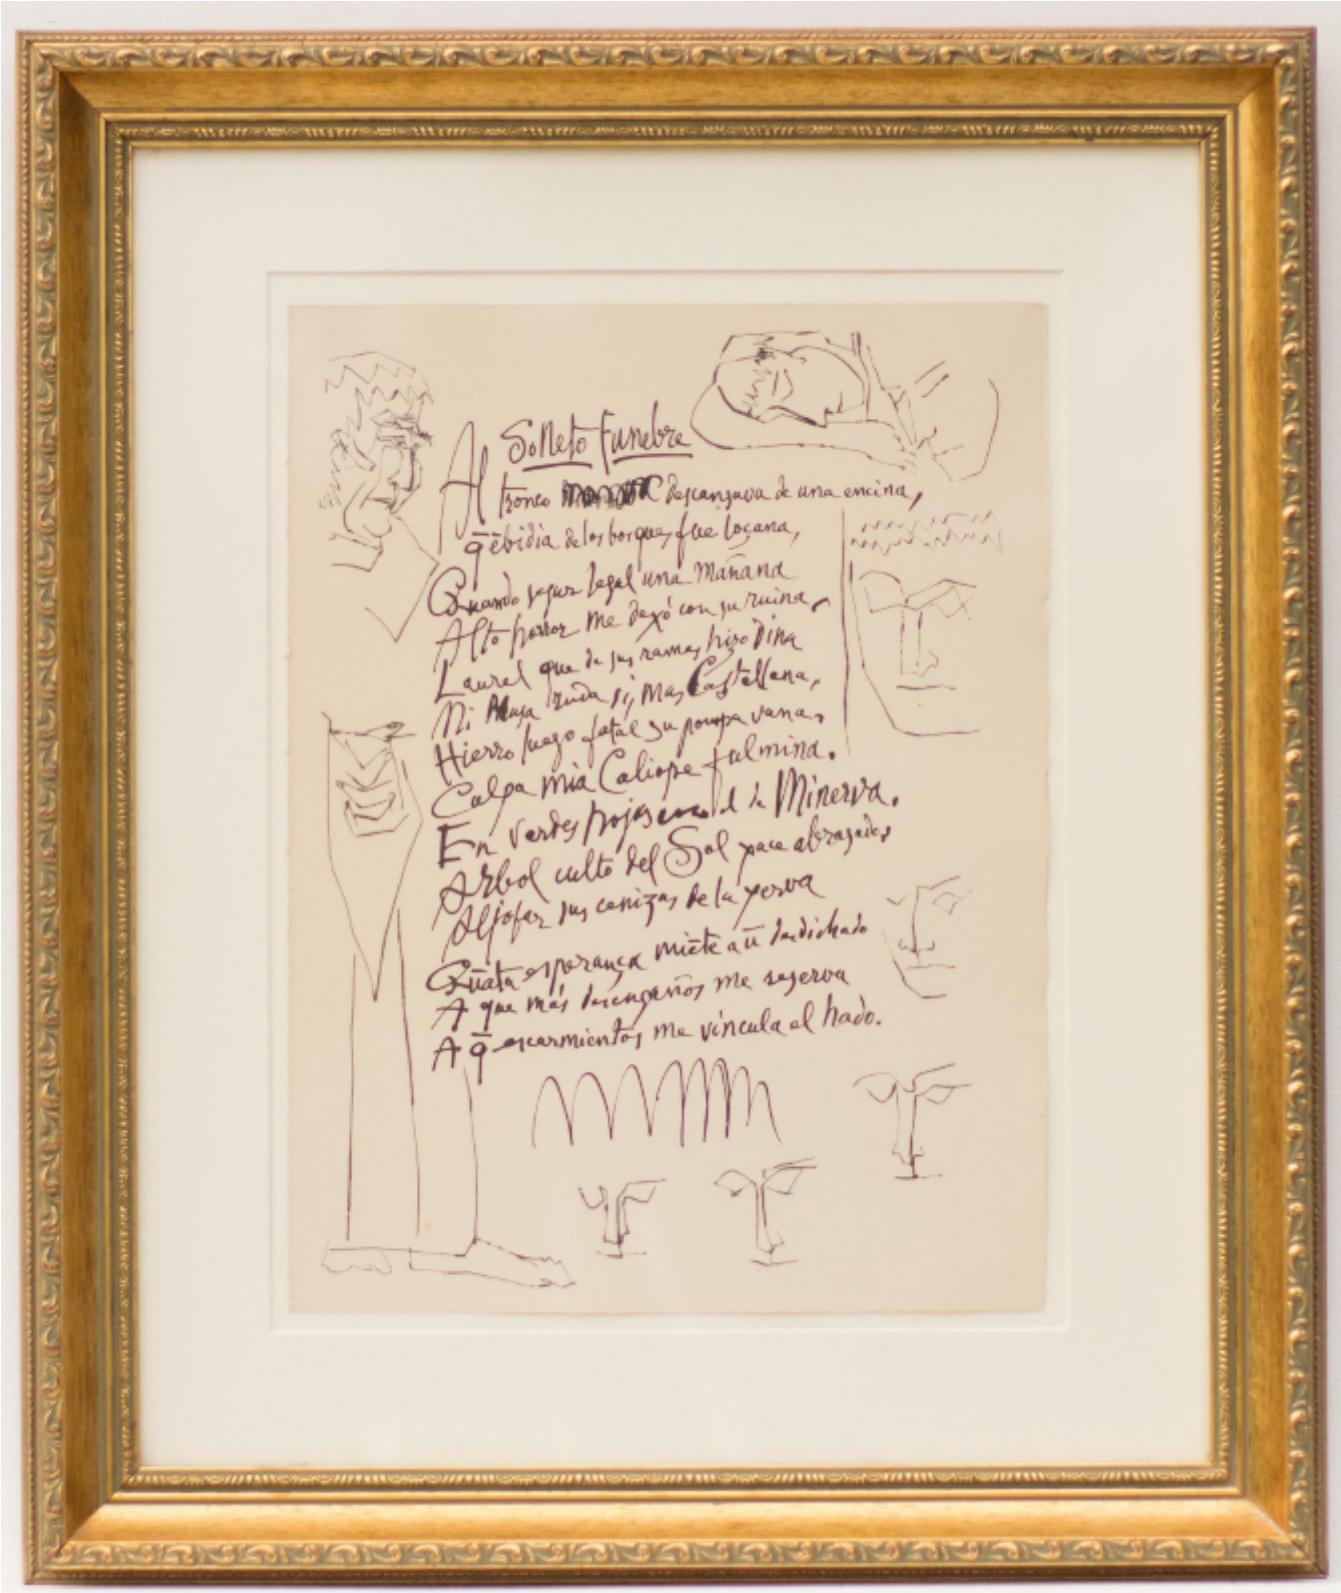 Soneto Funebre
Al tronco descansava de una encina,
q̄ ēbidia de los bosques fue loçana,
Quando segur legal una mañana
Alto horror me dexó con su ruina,
Laurel que de sus ramas hizo dina
Mi Musa ruda sí, mas Castellana,
Hierro luego fatal su pompa vana,
Culpa mia Caliope fulmina.
En verdes hojas el de Minerva.
Arbol culto del Sol yace abrasado,
Aljofar sus cenizas de la yerva
Quāta esperança miēte a ū desdichado
A que más desengaños me reserva
A q̄ escarmientos me vincula el hado.